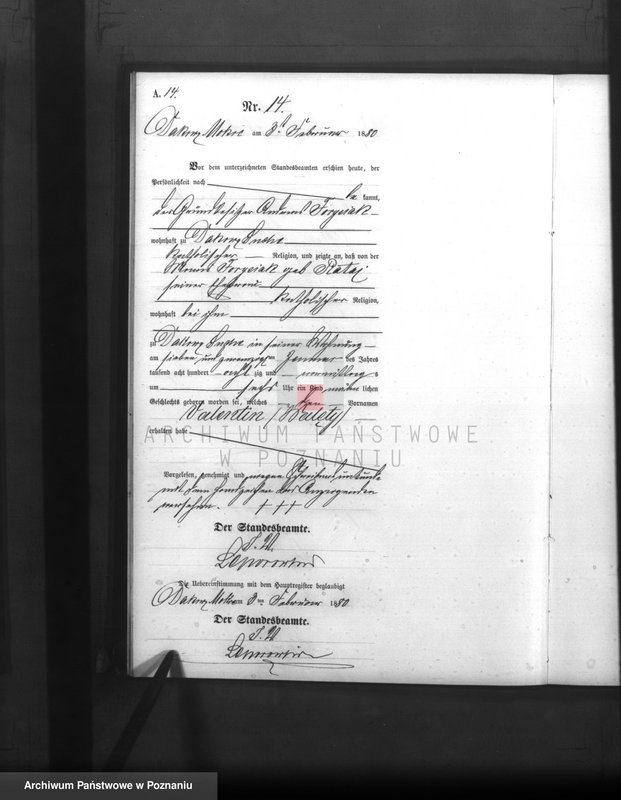 A. 14.
Nr. 14.
Dakowy Mokre am 3ten Februar 1880
Vor dem unterzeichneten Standesbeamten erschien heute, der
Persönlichkeit nach
be kannt,
der Grundbesitzer Andreas Torzsiak
wohnhaft zu Dakowy Suche
katholischer Religion, und zeigte an, daß von der
Torzsiak geb Rataj
seiner Ehefrau
katholischer Religion,
wohnhaft bei ihm
zu Dakowy Suche in seiner Wohnung
am sieben und zwanzigsten Januar des Jahres
tausend acht hundert acht zig und vormittags
um sechs Uhr ein Kind männ lichen
Geschlechts geboren worden sei, welches den Vornamen
Valentin (Walety)
erhalten habe
ARCHIWUM PAŃSTWOWE
W POZNANIU
Vorgelesen, genehmigt und wegen Schreibensunkunde
mit dem Handzeichen des Anzeigenden
versehen. + + +
Der Standesbeamte.
Die Uebereinstimmung mit dem Hauptregister beglaubigt
Dakowy Mokre am 3ten Februar 1880
Der Standesbeamte.
Archiwum Państwowe w Poznaniu